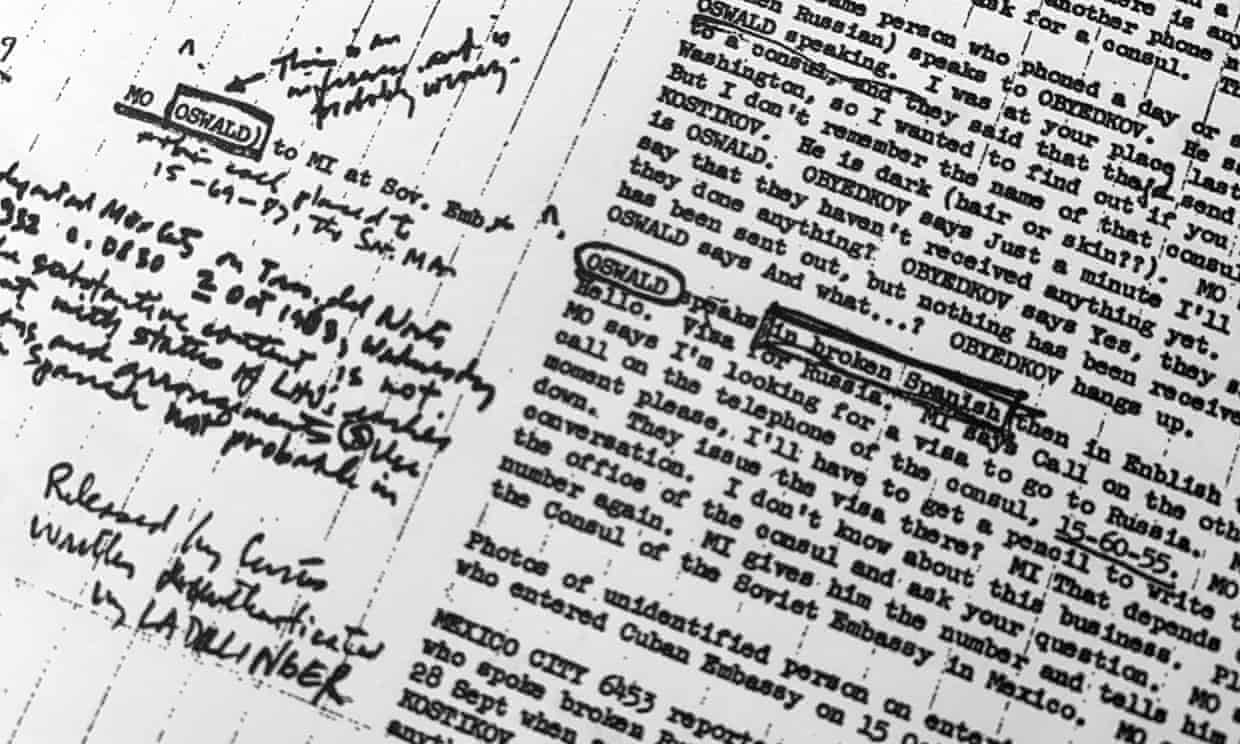 This is an
inference and is
probably wrong.
MO OSWALD) to MI at Sov. Emb
placed to
15-69-87, The Sov. MA
on
2 Oct 1963, Wednesday
substantive content is not
with status of
arrangements Use
Spanish not probable in
Released by
Written
by LA DILLINGER
here is any
another phone n
ask for a consul. Th
ame person who phoned a day or s
en Russian) speaks to OBYEDKOV. He sa
OSWALD speaking. I was at your place last
to a consul, and they said that they'd send
Washington, so I wanted to find out if you
But I don't remember the name of that consul
KOSTIKOV. He is dark (hair or skin??). MO
is OSWALD. OBYEDKOV says Just a minute I'll
say that they haven't received anything yet.
they done anything? OBYEDKOV says Yes, they s
has been sent out, but nothing has been receive
OSWALD says And what...? OBYEDKOV hangs up.
OSWALD speaks in broken Spanish then in Enblish t
Hello. Visa for Russia. MI says Call on the oth
MO says I'm looking for a visa to go to Russia. M
call on the telephone of the consul, 15-60-55. MO
moment please, I'll have to get a pencil to write t
down. They issue the visa there? MI That depends o
conversation. I don't know about this business. Pl
the office of the consul and ask your question. MO
number again. MI gives him the number and tells him
the Consul of the Soviet Embassy in Mexico. MO
Photos of unidentified person on enter
who entered Cuban Embassy on 15 O
MEXICO CITY 6453 report
who spoke broken R
28 Sept when
KOSTIKOV
anyth